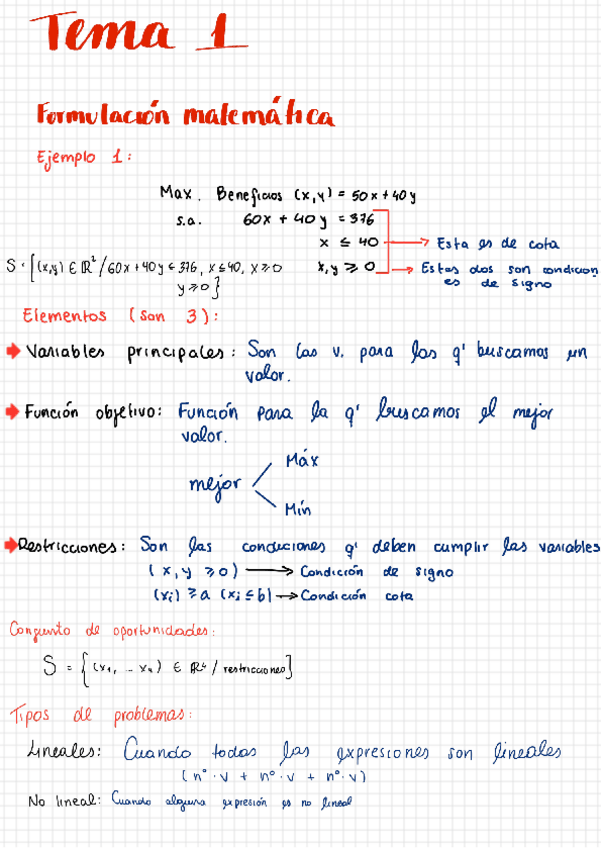 Tema 1
Formulación matemática
Ejemplo 1:
Max. Beneficios (x,y) = 50x + 40y
s.a. 60x + 40y = 376
x ≤ 40 → Esta es de cota
x, y ≥ 0 → Estas dos son condicion
es de signo
S = {(x,y) ∈ ℝ² / 60x + 40y ≤ 376, x ≤ 40, x ≥ 0
y ≥ 0}
Elementos (son 3):
Variables principales: Son las v. para las q' buscamos un
valor.
Función objetivo: Función para la q' buscamos el mejor
valor.
Máx
mejor
Mín
Restricciones: Son las condiciones q' deben cumplir las variables
(x, y ≥ 0) → Condición de signo
(xi) ≥ a (xi ≤ b) → Condición cota
Conjunto de oportunidades:
S = {(x₁, - x₄) ∈ ℝ⁴ / restricciones}
Tipos de problemas:
Lineales: Cuando todas las expresiones son lineales
(nº · v + nº · v + nº · v)
No lineal: Cuando alguna expresión es no lineal